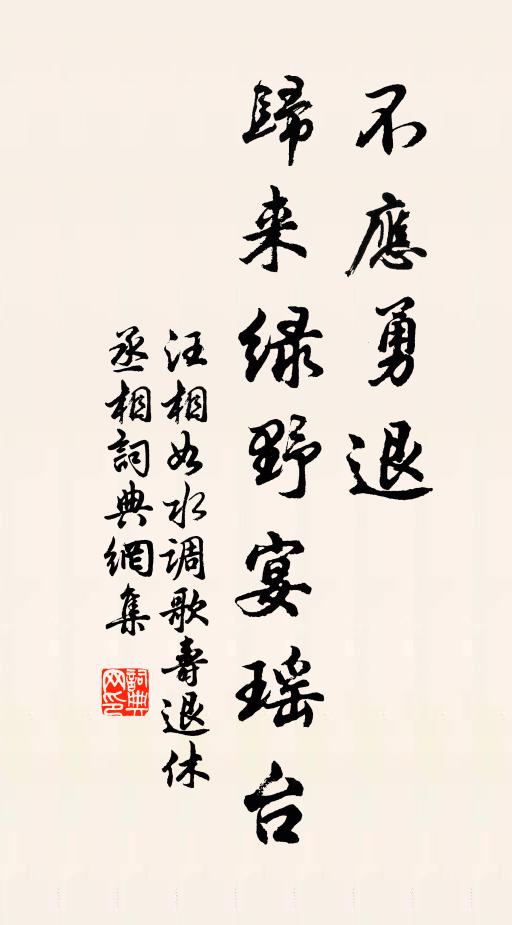 不應勇退
歸来緑野宴瑶台
汪相如水调歌壽退休
丞相詞典網集
詞典网印